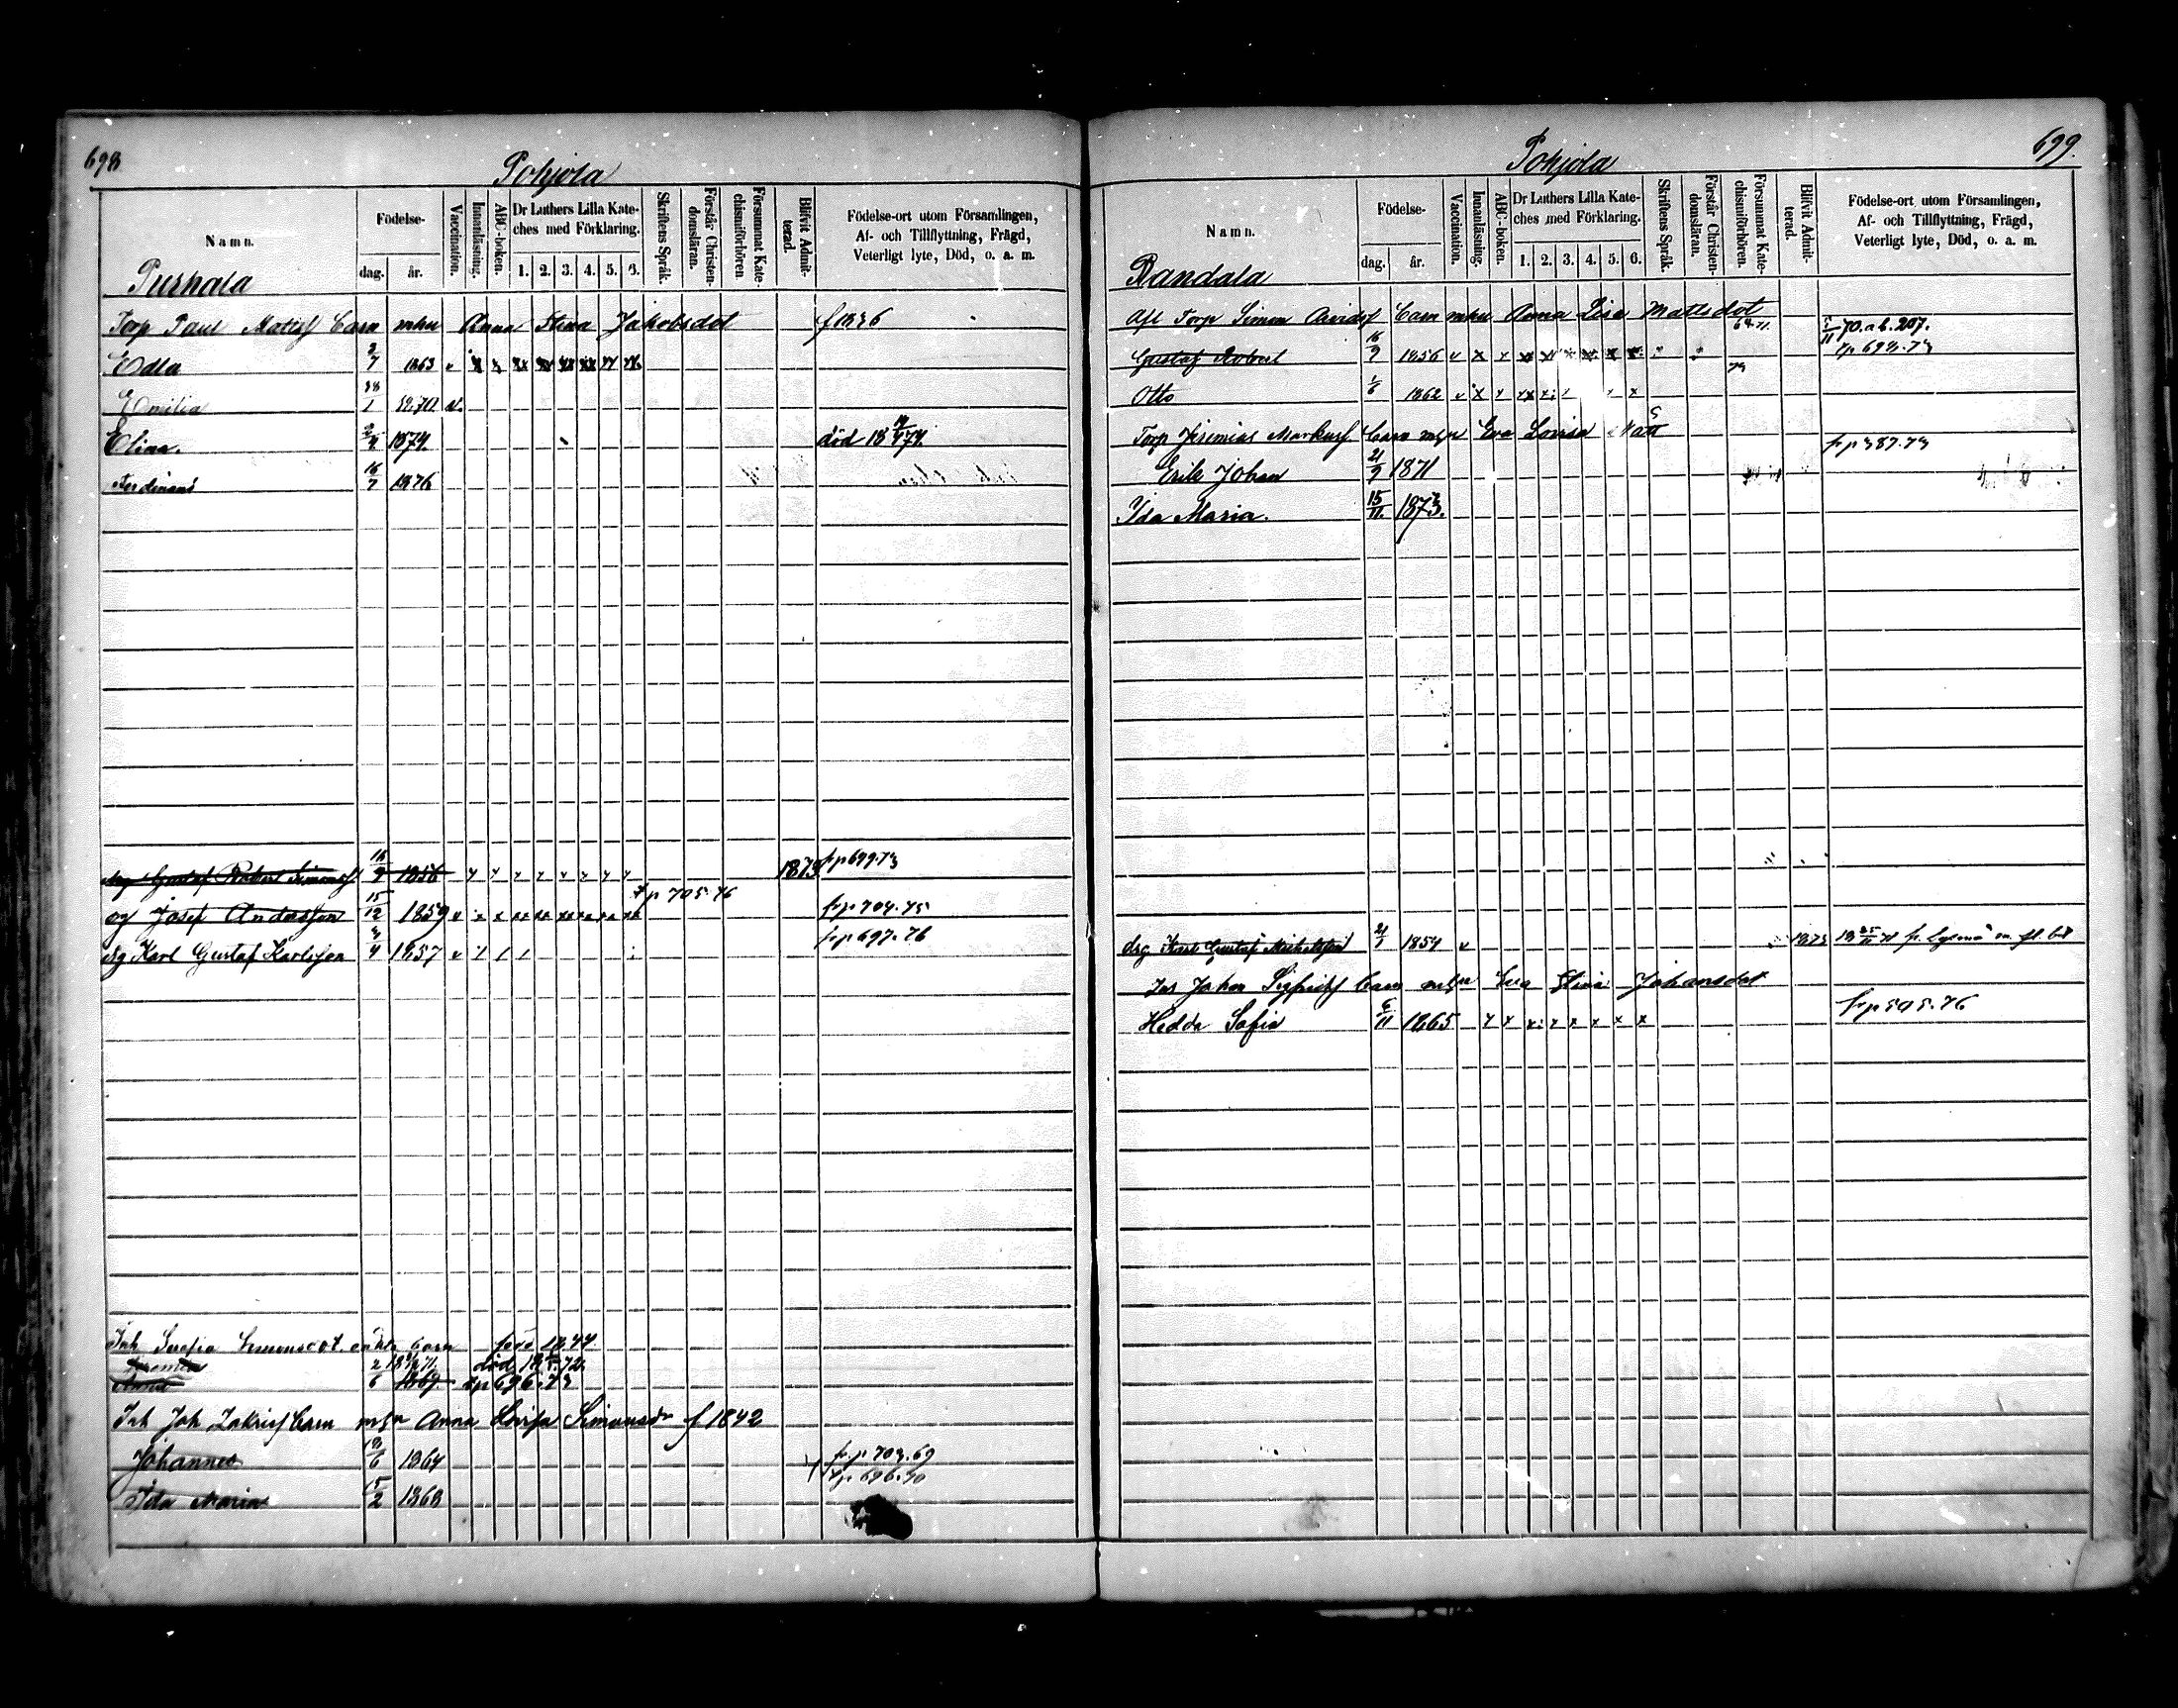 698
Pohjola
Namn.
Födelse-
dag.
år.
Vaccination.
Innanläsning.
ABC-boken.
Dr Luthers Lilla Kate-
ches med Förklaring.
1. 2. 3. 4. 5. 6.
Skriftens Språk.
Förstår Christen-
domsläran.
Försummat Kate-
chismiförhören
Blifvit Admit-
terad.
Födelse-ort utom Församlingen,
Af- och Tillflyttning, Frägd,
Veterligt lyte, Död, o. a. m.
Torp Paul Barn mhu Anna Stina Jakobsdot f 1836
Edla 2/7 1863 v
Emilia 28/1 70
Elina. 1874. död 18 74
Ferdinand 16/7 1876
drg Gustaf Robert Simonss 16/9 1856 1873 fr p 699.73
Josef Andersson 15/12 1859 v x x xx xx t p 705.76 fr p 704.75
drg Karl Gustaf Karlsson 3/4 1857 v fr p 697.76
Inh Serafia Simonsdot född 1844
död 72
6 1867 tp 696.73
Inh Joh Barn mhu Anna Lovisa Simonsdr f 1842
Johannes 1864 fr p 703.69
tp 696.70
Ida Maria 5/2 1868
699.
Pohjola
Namn.
Födelse-
dag.
år.
Vaccination.
Innanläsning.
ABC-boken.
Dr Luthers Lilla Kate-
ches med Förklaring.
1. 2. 3. 4. 5. 6.
Skriftens Språk.
Förstår Christen-
domsläran.
Försummat Kate-
chismiförhören.
Blifvit Admit-
terad.
Födelse-ort utom Församlingen,
Af- och Tillflyttning, Frägd,
Veterligt lyte, Död, o. a. m.
Randala
Afl Torp Simon Arvidsf Barn mhu Anna Lisa Mattsdot
5/11 70. ab. 207.
Gustaf Robert 16/9 1856 v x x tp 698.73
Otto 1/6 1862 v x x
Torp Jeremias Markusf Barn mhu Eva Lovisa fr p 387.73
Erik Johan 21/9 1871
Ida Maria. 15/11. 1873.
drg Karl Gustaf 21/1 1854 v 1873
Johan Sigfridsf Barn mhu Eva Stina Johansdot
Hedda Sofia 6/11 1865 fr p 505.76